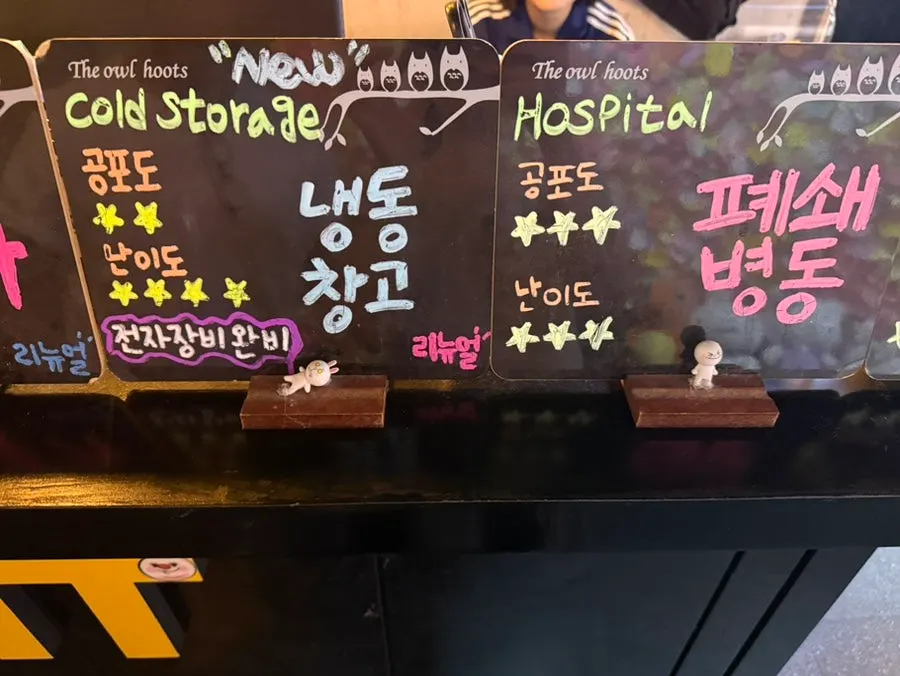 The owl hoots
"New"
Cold Storage
공포도
난이도
냉동
창고
전자장비 완비
리뉴얼
리뉴얼
The owl hoots
Hospital
공포도
난이도
폐쇄
병동
IT